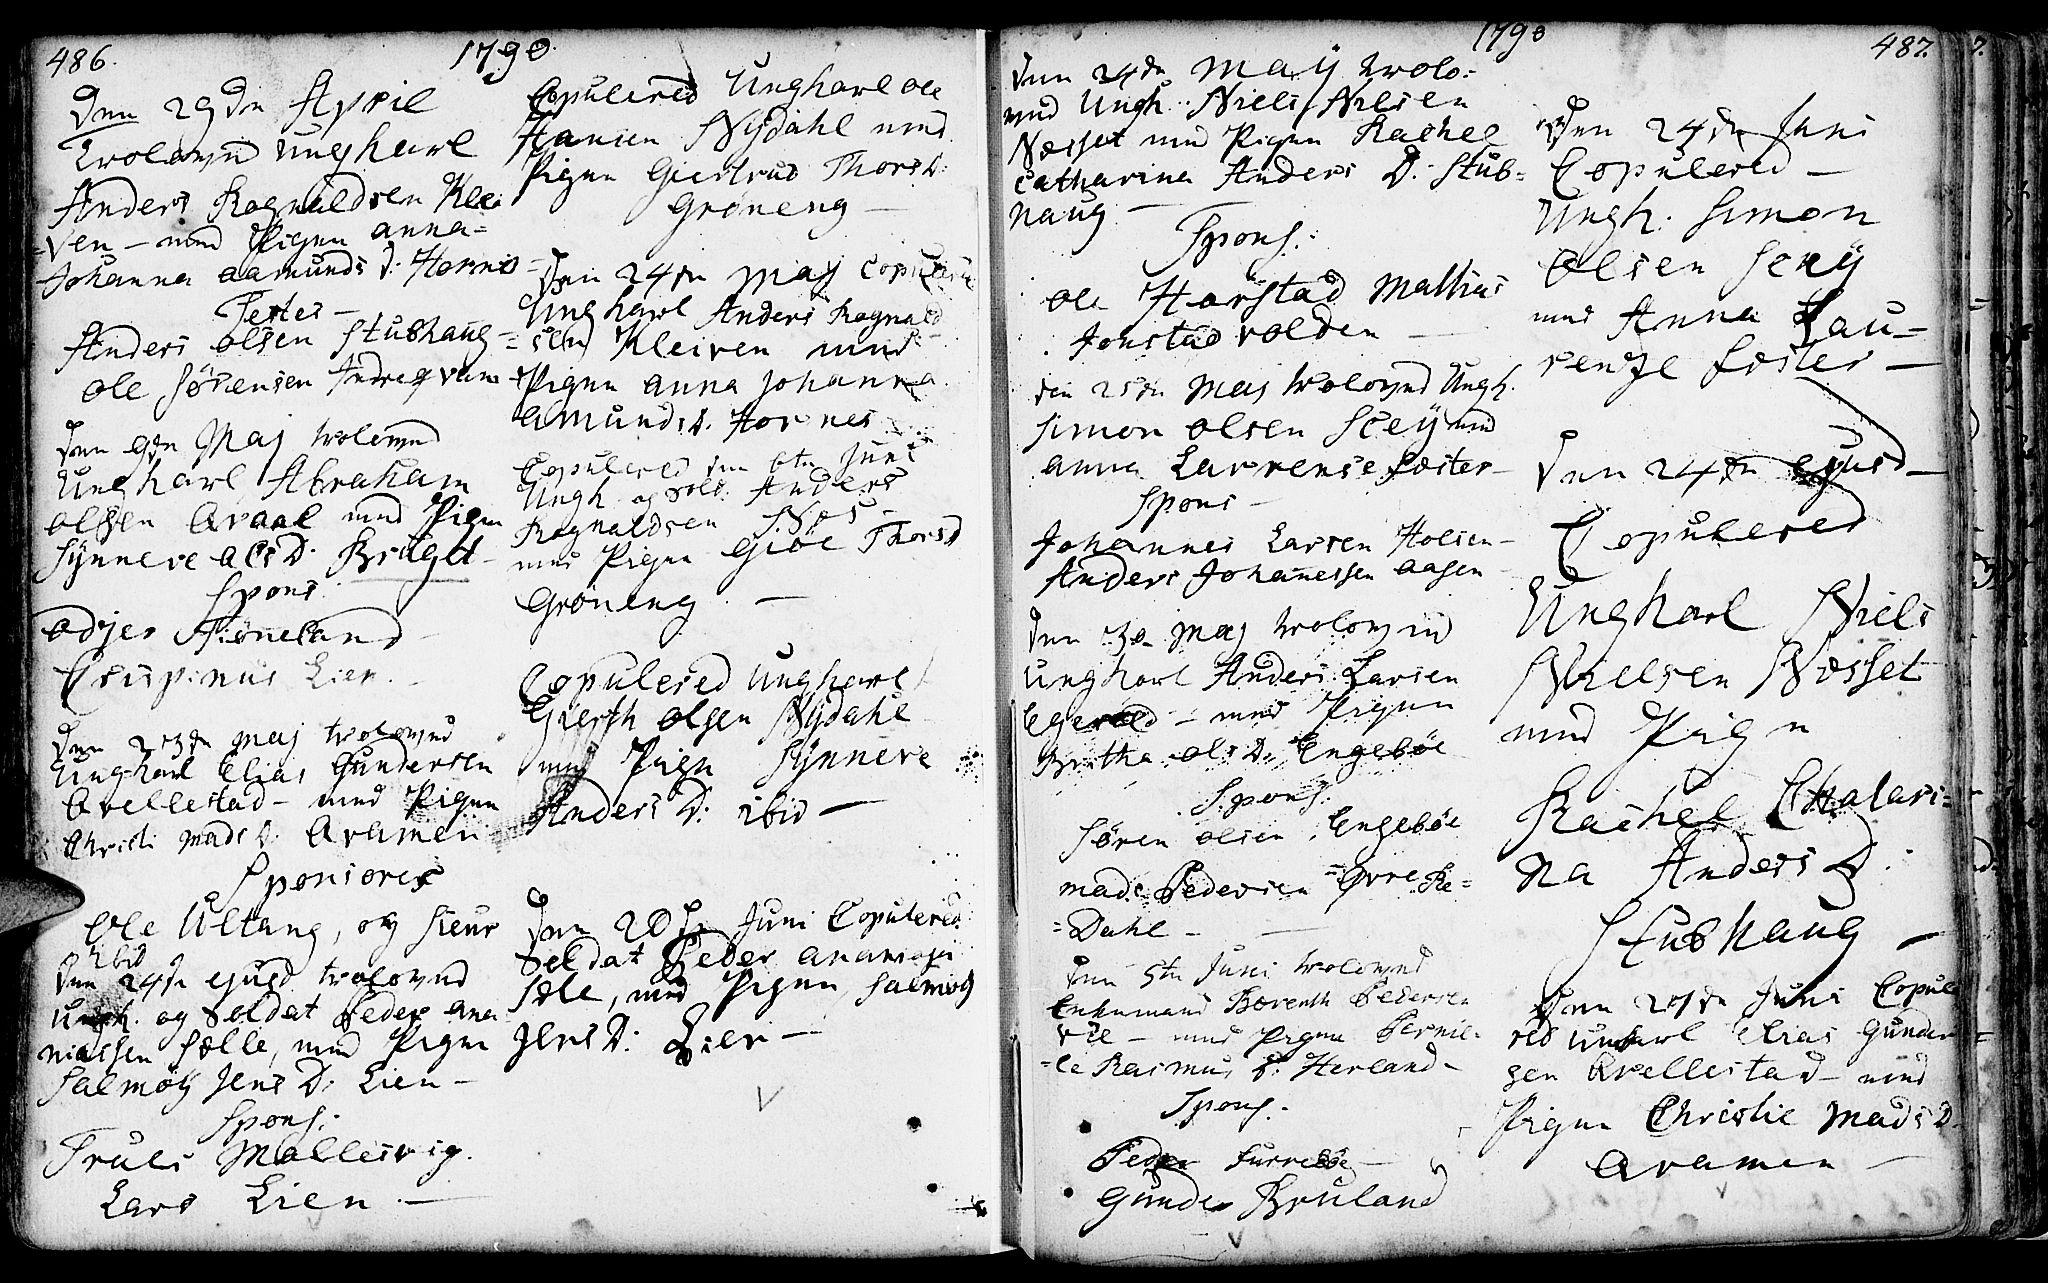 486.
1790
Den 29de April
Trolovgd Ungkarl
Anders Ragnaldsen Klei
=ven – med Pigen anna=
Johanna aamunds D: Hornes
Testes –
Anders olsen Stubhaug
ole Sörensen Indreqvam
Den 9de Maj trolovgd
Ungkarl Abraham
olssen Qvaal med Pigen
Synneve ols D. Brugst
Spons:
Crispinus Lien. –
Den 23de Maj trolovgd
Ungkarl Elias Gundersen
Qvellestad – med Pigen
Christi Mads D: Aramen
Sponsores
Ole Ultang, og Sieur
ibid
Den 24de ejusd trolovgd
Ungk. og Soldat Peder Ana
niassen Sælle, med Pigen
Salmöy Jens D: Lien –
Spons:
Truls Mollesvig.
Lars Lien. –
Copulered Ungkarl ole
Hansen Nydahl med
Pigen Giertrud Thors D:
Gröneng –
Den 24de Maj Copulered
Ungkarl Anders Ragnald
sen Kleiven med
Pigen anna Johanna
amunds D. Hornes
Copulered den 6te Juni
Ungk. og Sold. Anders
Ragnaldsen Næs –
med Pigen Giöe Thors D
Gröneng. –
Copulered Ungkarl
Gierth olsen Nydahl
med Pign Synneve
Anders D: ibid –
Den 20de Juni Copulered.
Soldat Peder ananiasen
Sæle, med Pigen Salmög
Jens D: Lien –
1790
487.
Den 24de May trolo=
ved Ungk: Niels Nilsen
Nesset med Pigen Rachel
Catharina Anders D: Stub=
haug –
Spons:
ole Horstad Mathias
Jonstadvolden –
Den 25de Maj trolovgd Ungk.
Simon olsen Seey med
anna Laurense Foster –
Spons –
Johannes Larsen Holsen –
Anders Johannessen aasen –
Den 30 Maj trolovgd
Ungkarl Anders Larsen
– med Pigen
Britha ols D: Engeböe
Spons:
Sören olsen Engeböe
Mads Pedersen =Övre Re=
=Dahl –
Den 5te Juni trolovgd
Enkemand Berenth Pedersen
Vie – med Pigen Pernil=
=le Rasmus D: Herland –
Spons.
Peder Furreböe –
Gunder Bruland
Den 24de Juni
Copulered –
Ungk. Simon
Olsen Seey
med Anna Lau=
rentze Foster –
Den 24de ejusd –
Copulered
Ungkarl Niels
Nielsen Nesset
med Pign
Rachel Cathari=
na Anders D:
Stubhaug –
Den 27de Juni Copule
red Unkarl Elias Gunder=
sen Qvellestad – med
Pigen Christie Mads D
Aramen –